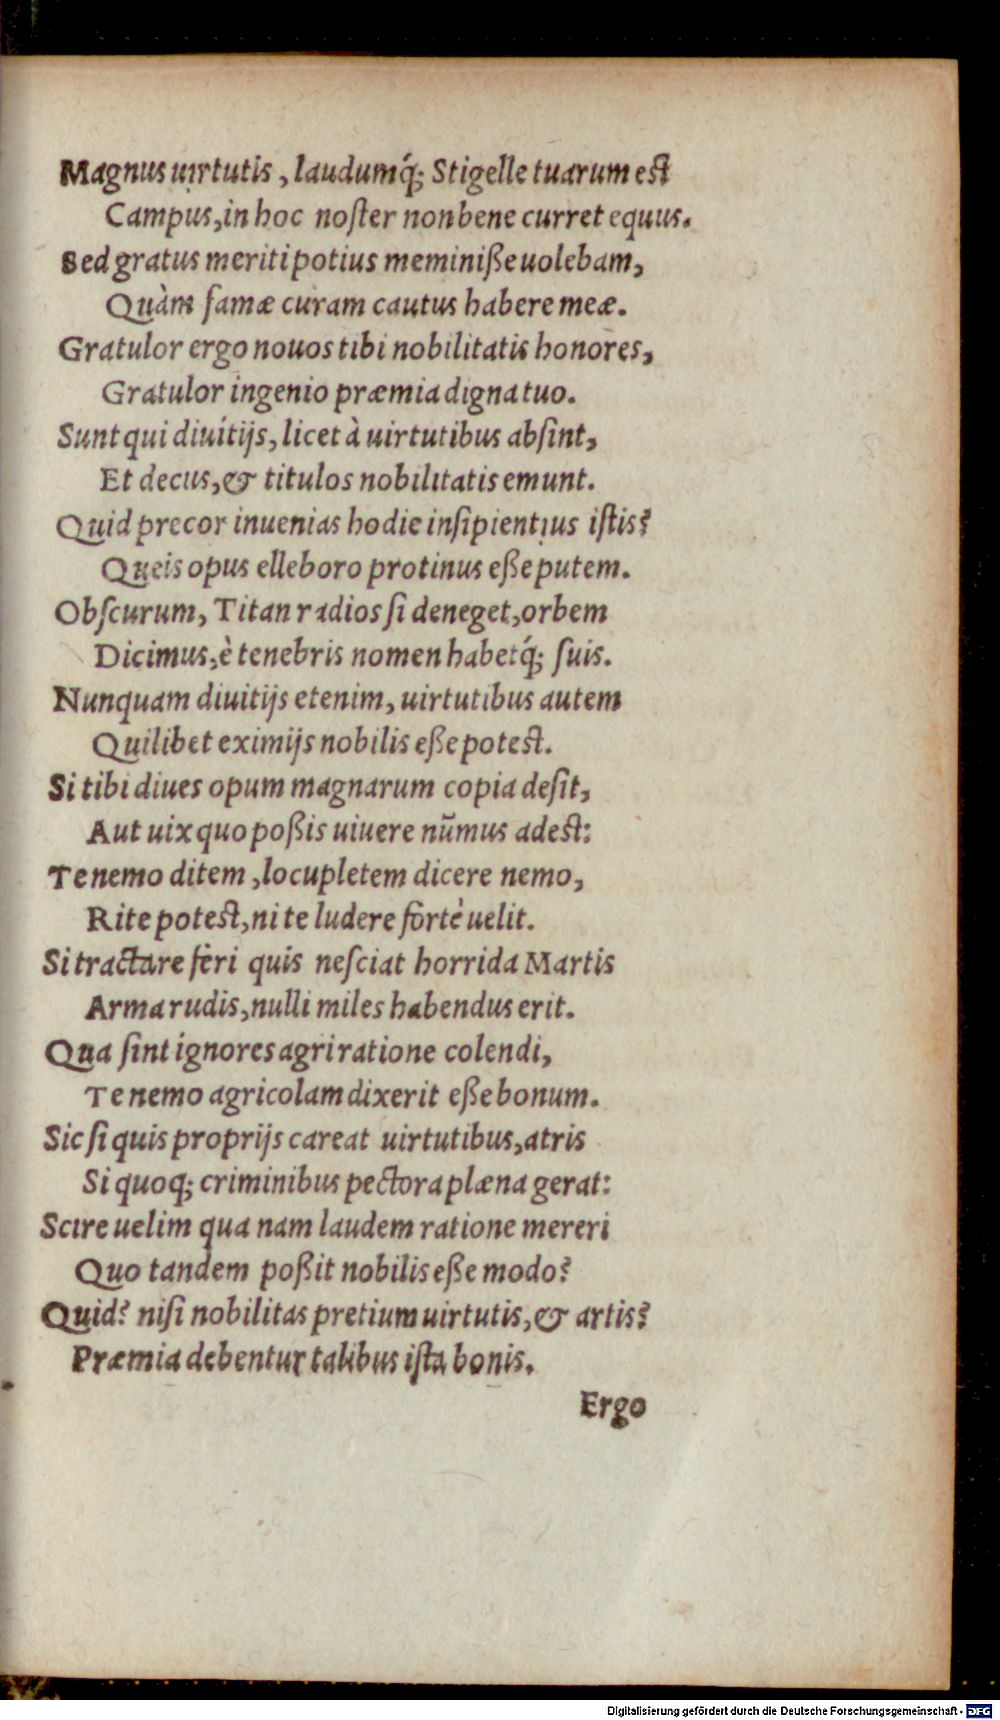 Magnus uirtutis, laudumq́; Stigelle tuarum est
Campus, in hoc noſter non bene curret equus.
Sed gratus meriti potius meminiße uolebam,
Quàm famæ curam cautus habere meæ.
Gratulor ergo nouos tibi nobilitatis honores,
Gratulor ingenio præmia digna tuo.
Sunt qui diuitijs, licet à uirtutibus abſint,
Et decus, & titulos nobilitatis emunt.
Quid precor inuenias hodie inſipientius iſtis?
Queis opus elleboro protinus eße putem.
Obſcurum, Titan radios ſi deneget, orbem
Dicimus, è tenebris nomen habetq́; ſuis.
Nunquam diuitijs etenim, uirtutibus autem
Quilibet eximijs nobilis eße potest.
Si tibi diues opum magnarum copia deſit,
Aut uix quo poßis uiuere nūmus adest:
Te nemo ditem, locupletem dicere nemo,
Rite potest, ni te ludere fortè uelit.
Si tractare feri quis neſciat horrida Martis
Arma rudis, nulli miles habendus erit.
Qua ſint ignores agri ratione colendi,
Te nemo agricolam dixerit eße bonum.
Sic ſi quis proprijs careat uirtutibus, atris
Si quoq; criminibus pectora plæna gerat:
Scire uelim qua nam laudem ratione mereri
Quo tandem poßit nobilis eße modo?
Quid? niſi nobilitas pretium uirtutis, & artis?
Præmia debentur talibus iſta bonis.
Ergo
Digitalisierung gefördert durch die Deutsche Forschungsgemeinschaft - DFG